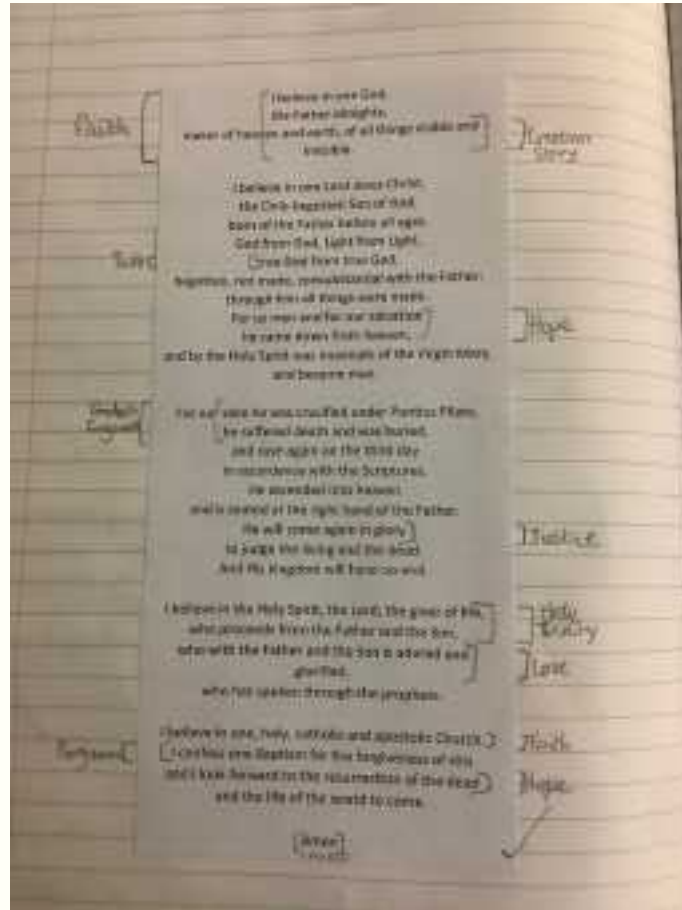 I believe in one God,
the Father almighty,
Faith
maker of heaven and earth, of all things visible and
invisible.
Creation
Story
I believe in one Lord Jesus Christ,
the Only Begotten Son of God,
born of the Father before all ages.
God from God, Light from Light,
true God from true God,
begotten, not made, consubstantial with the Father;
through him all things were made.
For us men and for our salvation
Hope
he came down from heaven,
and by the Holy Spirit was incarnate of the Virgin Mary,
and became man.
For our sake he was crucified under Pontius Pilate,
he suffered death and was buried,
and rose again on the third day
in accordance with the Scriptures.
He ascended into heaven
and is seated at the right hand of the Father.
He will come again in glory
Justice
to judge the living and the dead
And His kingdom will have no end.
I believe in the Holy Spirit, the Lord, the giver of life,
Holy
Trinity
who proceeds from the Father and the Son,
who with the Father and the Son is adored and
glorified,
Love
who has spoken through the prophets.
I believe in one, holy, catholic and apostolic Church.
Faith
I confess one Baptism for the forgiveness of sins
and I look forward to the resurrection of the dead
Hope
and the life of the world to come.
Amen